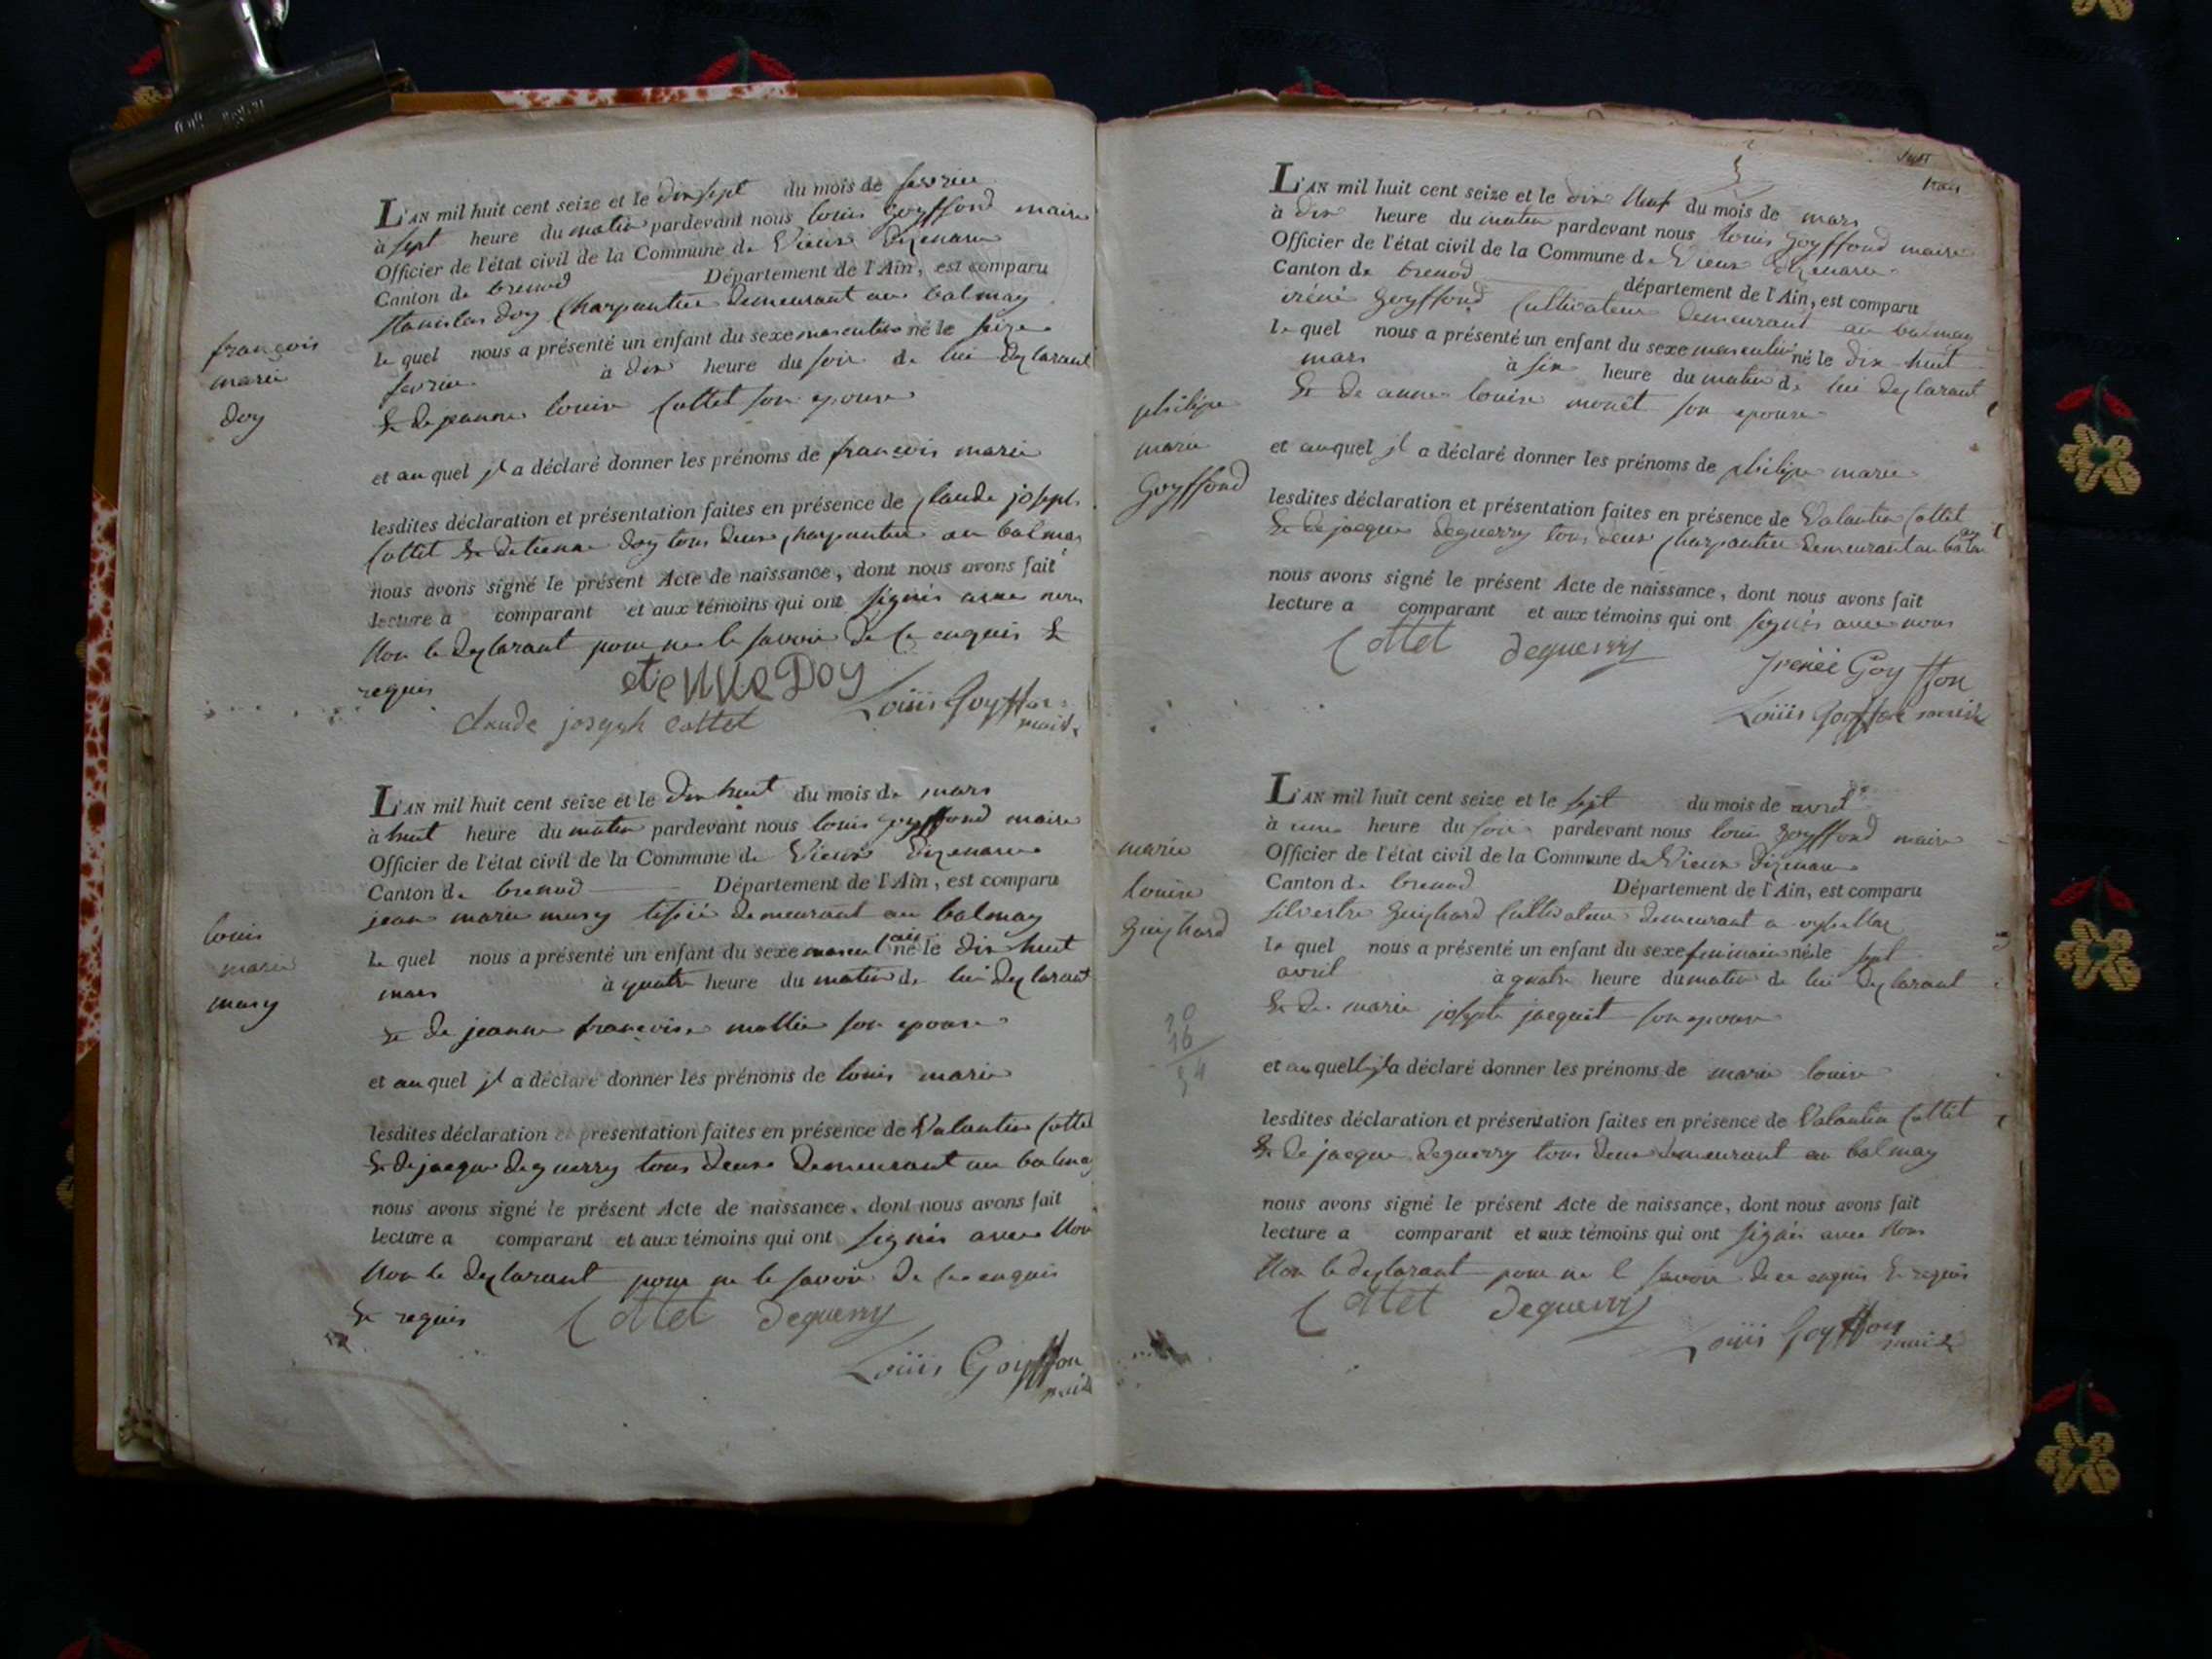 françois
marie
doy
L'AN mil huit cent seize et le dix sept du mois de fevrier
à sept heure du matin pardevant nous louis goyffond maire
Officier de l'état civil de la Commune de Vieux dizenave
Canton de brenod Département de l'Ain, est comparu
stanislas doy Charpentier demeurant au balmay
le quel nous a présenté un enfant du sexe masculin né le seize
fevrier à dix heure du soir de lui declarant
& de jeanne louise Cottet son epouse
et au quel il a déclaré donner les prénoms de françois marie
lesdites déclaration et présentation faites en présence de Claude joseph
Cottet & detienne doy tous deux charpentier au balmay
nous avons signé le présent Acte de naissance, dont nous avons fait
lecture a comparant et aux témoins qui ont signés avec nous
Non le declarant pour ne le savoir de ce enquis &
requis
eteNNe Doy
Louis Goyffon
claude joseph cottet
maire
louis
marie
mury
L'AN mil huit cent seize et le dix huit du mois de mars
à huit heure du matin pardevant nous louis goyffond maire
Officier de l'état civil de la Commune de Vieux dizenave
Canton de brenod Département de l'Ain, est comparu
jean marie mury tissié demeurant au balmay
le quel nous a présenté un enfant du sexe masculain né le dix huit
mars à quatre heure du matin de lui declarant
& de jeanne françoise mollie son epouse
et au quel il a déclaré donner les prénoms de louis marie
lesdites déclaration et présentation faites en présence de Valentin Cottet
& de jacque deguerry tous deux demeurant au balmay
nous avons signé le présent Acte de naissance, dont nous avons fait
lecture a comparant et aux témoins qui ont signés avec Nous
Non le declarant pour ne le savoir de ce enquis
& requis
Cottet deguerry
Louis Goyffon
maire
philipe
marie
goyffond
L'AN mil huit cent seize et le dix Neuf du mois de mars
à dix heure du matin pardevant nous louis goyffond maire
Officier de l'état civil de la Commune de Vieux dizenave
Canton de brenod département de l'Ain, est comparu
iréné goyffond Cultivateur demeurant au balmay
le quel nous a présenté un enfant du sexe masculin né le dix huit
mars à six heure du matin de lui declarant
& de anne louise monet son epouse
et auquel il a déclaré donner les prénoms de philipe marie
lesdites déclaration et présentation faites en présence de Valantin Cottet
& de jacque deguerry tous deux charpantier demeurant au balmay
nous avons signé le présent Acte de naissance, dont nous avons fait
lecture a comparant et aux témoins qui ont signés avec nous
Cottet deguerry
Irenée Goyffon
Louis Goyffon maire
marie
louise
guichard
L'AN mil huit cent seize et le sept du mois de avril
à une heure du soir pardevant nous louis goyffond maire
Officier de l'état civil de la Commune de Vieux dizenave
Canton de brenod Département de l'Ain, est comparu
silvestre guichard Cultivateur demeurant a
le quel nous a présenté un enfant du sexe feminain né le sept
avril à quatre heure du matin de lui declarant
& de marie josephe jacquet son epouse
et au quell il a déclaré donner les prénoms de marie louise
lesdites déclaration et présentation faites en présence de Valantin Cottet
& de jacque deguerry tous deux demeurant au balmay
nous avons signé le présent Acte de naissance, dont nous avons fait
lecture a comparant et aux témoins qui ont signés avec Nous
Non le declarant pour ne l savoir de ce enquis & requis
Cottet deguerry
Louis Goyffon
maire